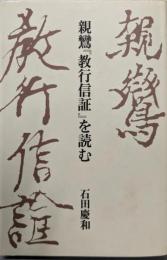 親鸞
親鸞『教行信証』を読む
石田慶和
教行信証